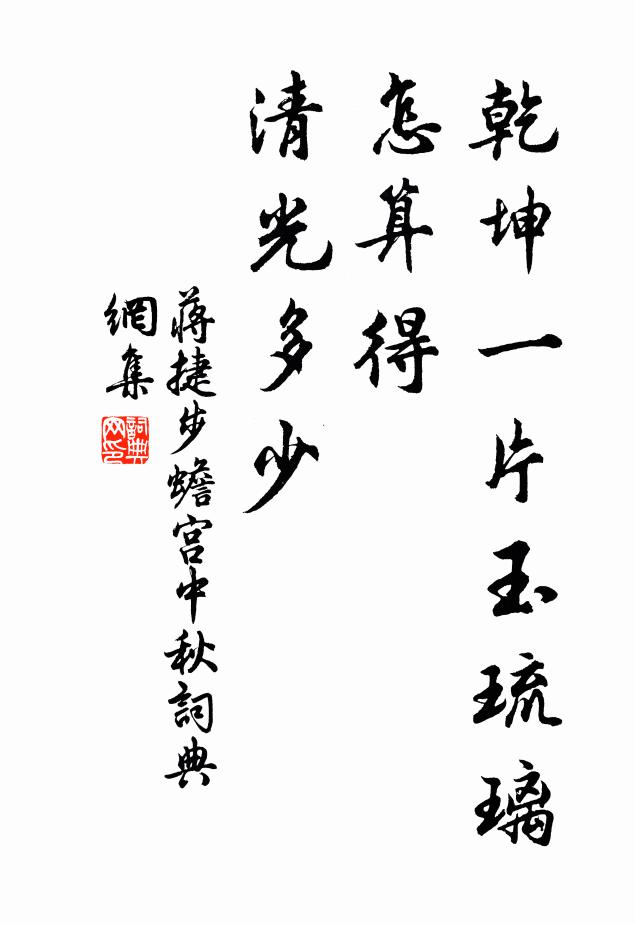 乾坤一片玉琉璃
怎算得
清光多少
蔣捷步蟾宮中秋詞典
網集
詞典
网印